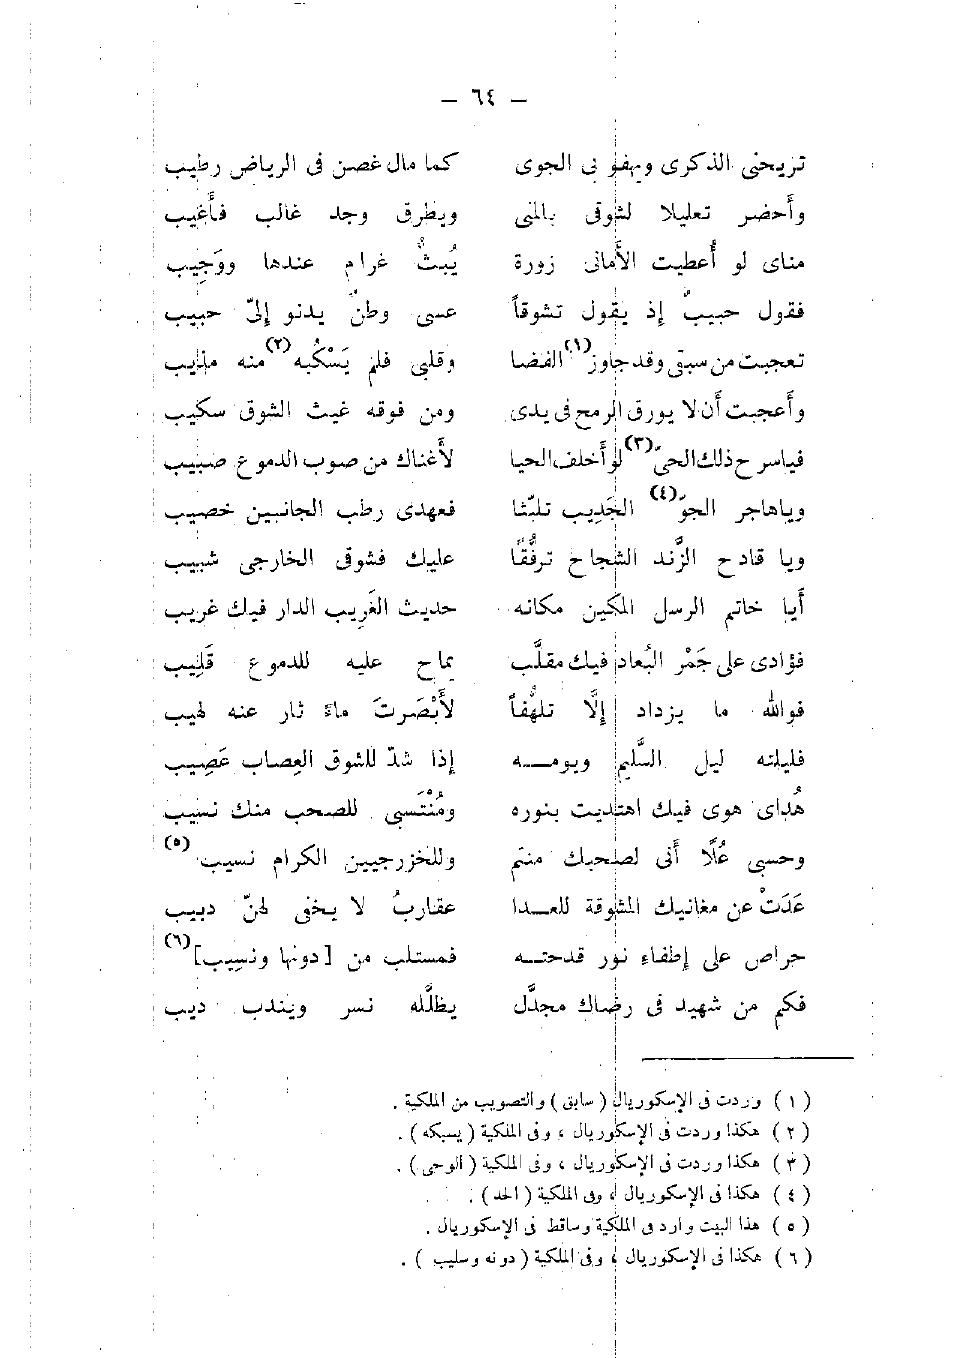 — ٦٤ —
تزيحنى الذكرى ويهفو بى الجوى كما مال غصن فى الرياض رطيب
وأحضر تعليلا لشوقى بالمنى ويطرق وجد غالب فأغيب
مناى لو أُعطيت الأمانى زورة يُبثُّ غرام عندها ووَجِيب
فقول حبيبٌ إذ يقول تشوقاً عسى وطنٌ يدنو إلىّ حبيب
تعجبت من سبقى وقد جاوز(١) الفضا وقلبى فلم يَسْكُبه(٢) منه مذيب
وأعجبت أن لا يورق الرمح فى يدى ومن فوقه غيث الشوق سكيب
فياسرح ذلك الحىّ(٣) لو أخلف الحيا لأغناك من صوب الدموع صبيب
وياهاجر الجوّ(٤) الجَدِيب تلبّثا فعهدى رطب الجانبين خصيب
ويا قادح الزَّند الشجاح ترفُّقًا عليك فشوقى الخارجى شبيب
أيا خاتم الرسل المكين مكانه حديث الغَرِيب الدار فيك غريب
فؤادى على جَمْر البُعاد فيك مقلَّب يماح عليه للدموع قَلِيب
فوالله ما يزداد إلَّا تلهُّفاً لأَبْصَرتَ ماءً ثار عنه لهيب
فليلته ليل السَّليم ويومـــه إذا شدّ للشوق العِصاب عَصِيب
هُداى هوى فيك اهتديت بنوره ومُنْتَسبى للصحب منك نسيب
وحسبى عُلًا أنى لصحبك منتم وللخزرجيين الكرام نسيب(٥)
عَدَتْ عن مغانيك المشوقة للعـــدا عقاربُ لا يخفى لهنّ دبيب
حراص على إطفاء نور قدحتـــه فمستلب من [دونها ونسيب](٦)
فكم من شهيد فى رضاك مجدَّل يظلَّله نسر ويندب ذيب
(١) وردت فى الإسكوريال (سابق) والتصويب من الملكية .
(٢) هكذا وردت فى الإسكوريال ، وفى الملكية (يسبكه) .
(٣) هكذا وردت فى الإسكوريال ، وفى الملكية (الوحى) .
(٤) هكذا فى الإسكوريال ، وفى الملكية (الحد) .
(٥) هذا البيت وارد فى الملكية وساقط فى الإسكوريال .
(٦) هكذا فى الإسكوريال ، وفى الملكية (دونه وسليب) .